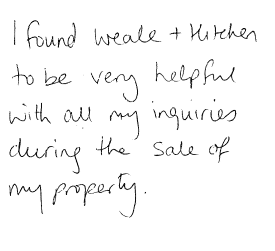 I found Weale + Hitchen
to be very helpful
with all my inquiries
during the sale of
my property.